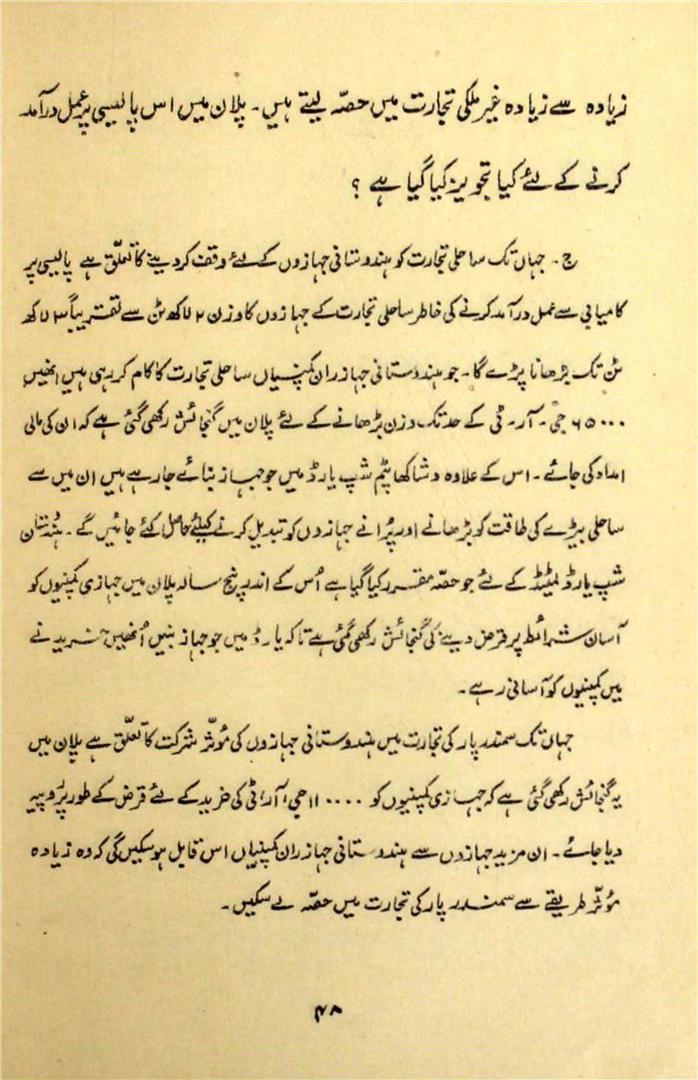 زیادہ سے زیادہ غیر ملکی تجارت میں حصّہ لیتے ہیں۔ پلان میں اس پالیسی پر عمل درآمد
کرنے کے لئے کیا تجویز کیا گیا ہے ؟
ج۔ جہاں تک ساحلی تجارت کو ہندوستانی جہازوں کے لئے وقف کر دینے کا تعلّق ہے پالیسی پر
کامیابی سے عمل درآمد کرنے کی خاطر ساحلی تجارت کے جہازوں کا وزن ۲ لاکھ ٹن سے تقریباً ۳ لاکھ
ٹن تک بڑھانا پڑے گا۔ جو ہندوستانی جہازران کمپنیاں ساحلی تجارت کا کام کر رہی ہیں انھیں
۶۵۰۰۰ جی۔ آر۔ ٹی کے حد تک وزن بڑھانے کے لئے پلان میں گنجائش رکھی گئی ہے کہ ان کی مالی
امداد کی جائے۔ اس کے علاوہ وشاکھاپٹم شپ یارڈ میں جو جہاز بنائے جا رہے ہیں ان میں سے
ساحلی بیڑے کی طاقت کو بڑھانے اور پُرانے جہازوں کو تبدیل کرنے کیلئے حاصل کئے جائیں گے۔ ہندستان
شپ یارڈ لمیٹڈ کے لئے جو حصّہ مقرر کیا گیا ہے اُس کے اندر پنج سالہ پلان میں جہازی کمپنیوں کو
آسان شرائط پر قرض دینے کی گنجائش رکھی گئی ہے تاکہ یارڈ میں جو جہاز بنیں اُنھیں خریدنے
میں کمپنیوں کو آسانی رہے۔
جہاں تک سمندر پار کی تجارت میں ہندوستانی جہازوں کی مُوثّر شرکت کا تعلّق ہے پلان میں
یہ گنجائش رکھی گئی ہے کہ جہازی کمپنیوں کو ۱۱۰۰۰۰ جی، آر، ٹی کی خرید کے لئے قرض کے طور پر روپیہ
دیا جائے۔ ان مزید جہازوں سے ہندوستانی جہازران کمپنیاں اس قابل ہو سکیں گی کہ وہ زیادہ
مُوثّر طریقے سے سمندر پار کی تجارت میں حصّہ لے سکیں۔
۴۸